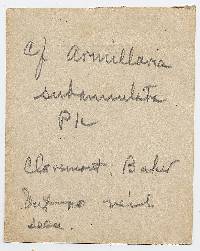 cf Armillaria
subannulata
Pk
Claremont, Baker
seen.